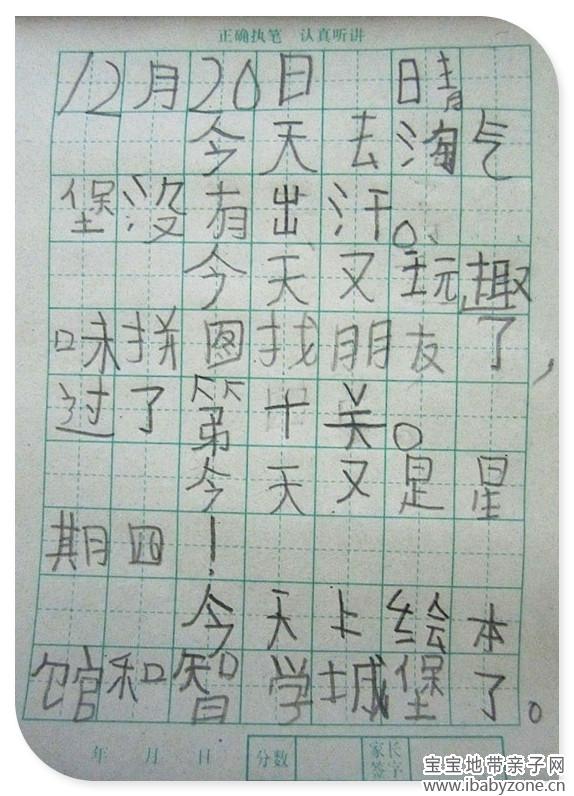 正确执笔 认真听讲
12月20日 晴
今天去淘气
堡没有出汗。
今天又玩趣
味拼图找朋友了,
过了第十关。
今天又是星
期四!
今天上绘本
馆和智学城堡了。
年 月 日 分数 家长签字
宝宝地带亲子网
www.ibabyzone.cn